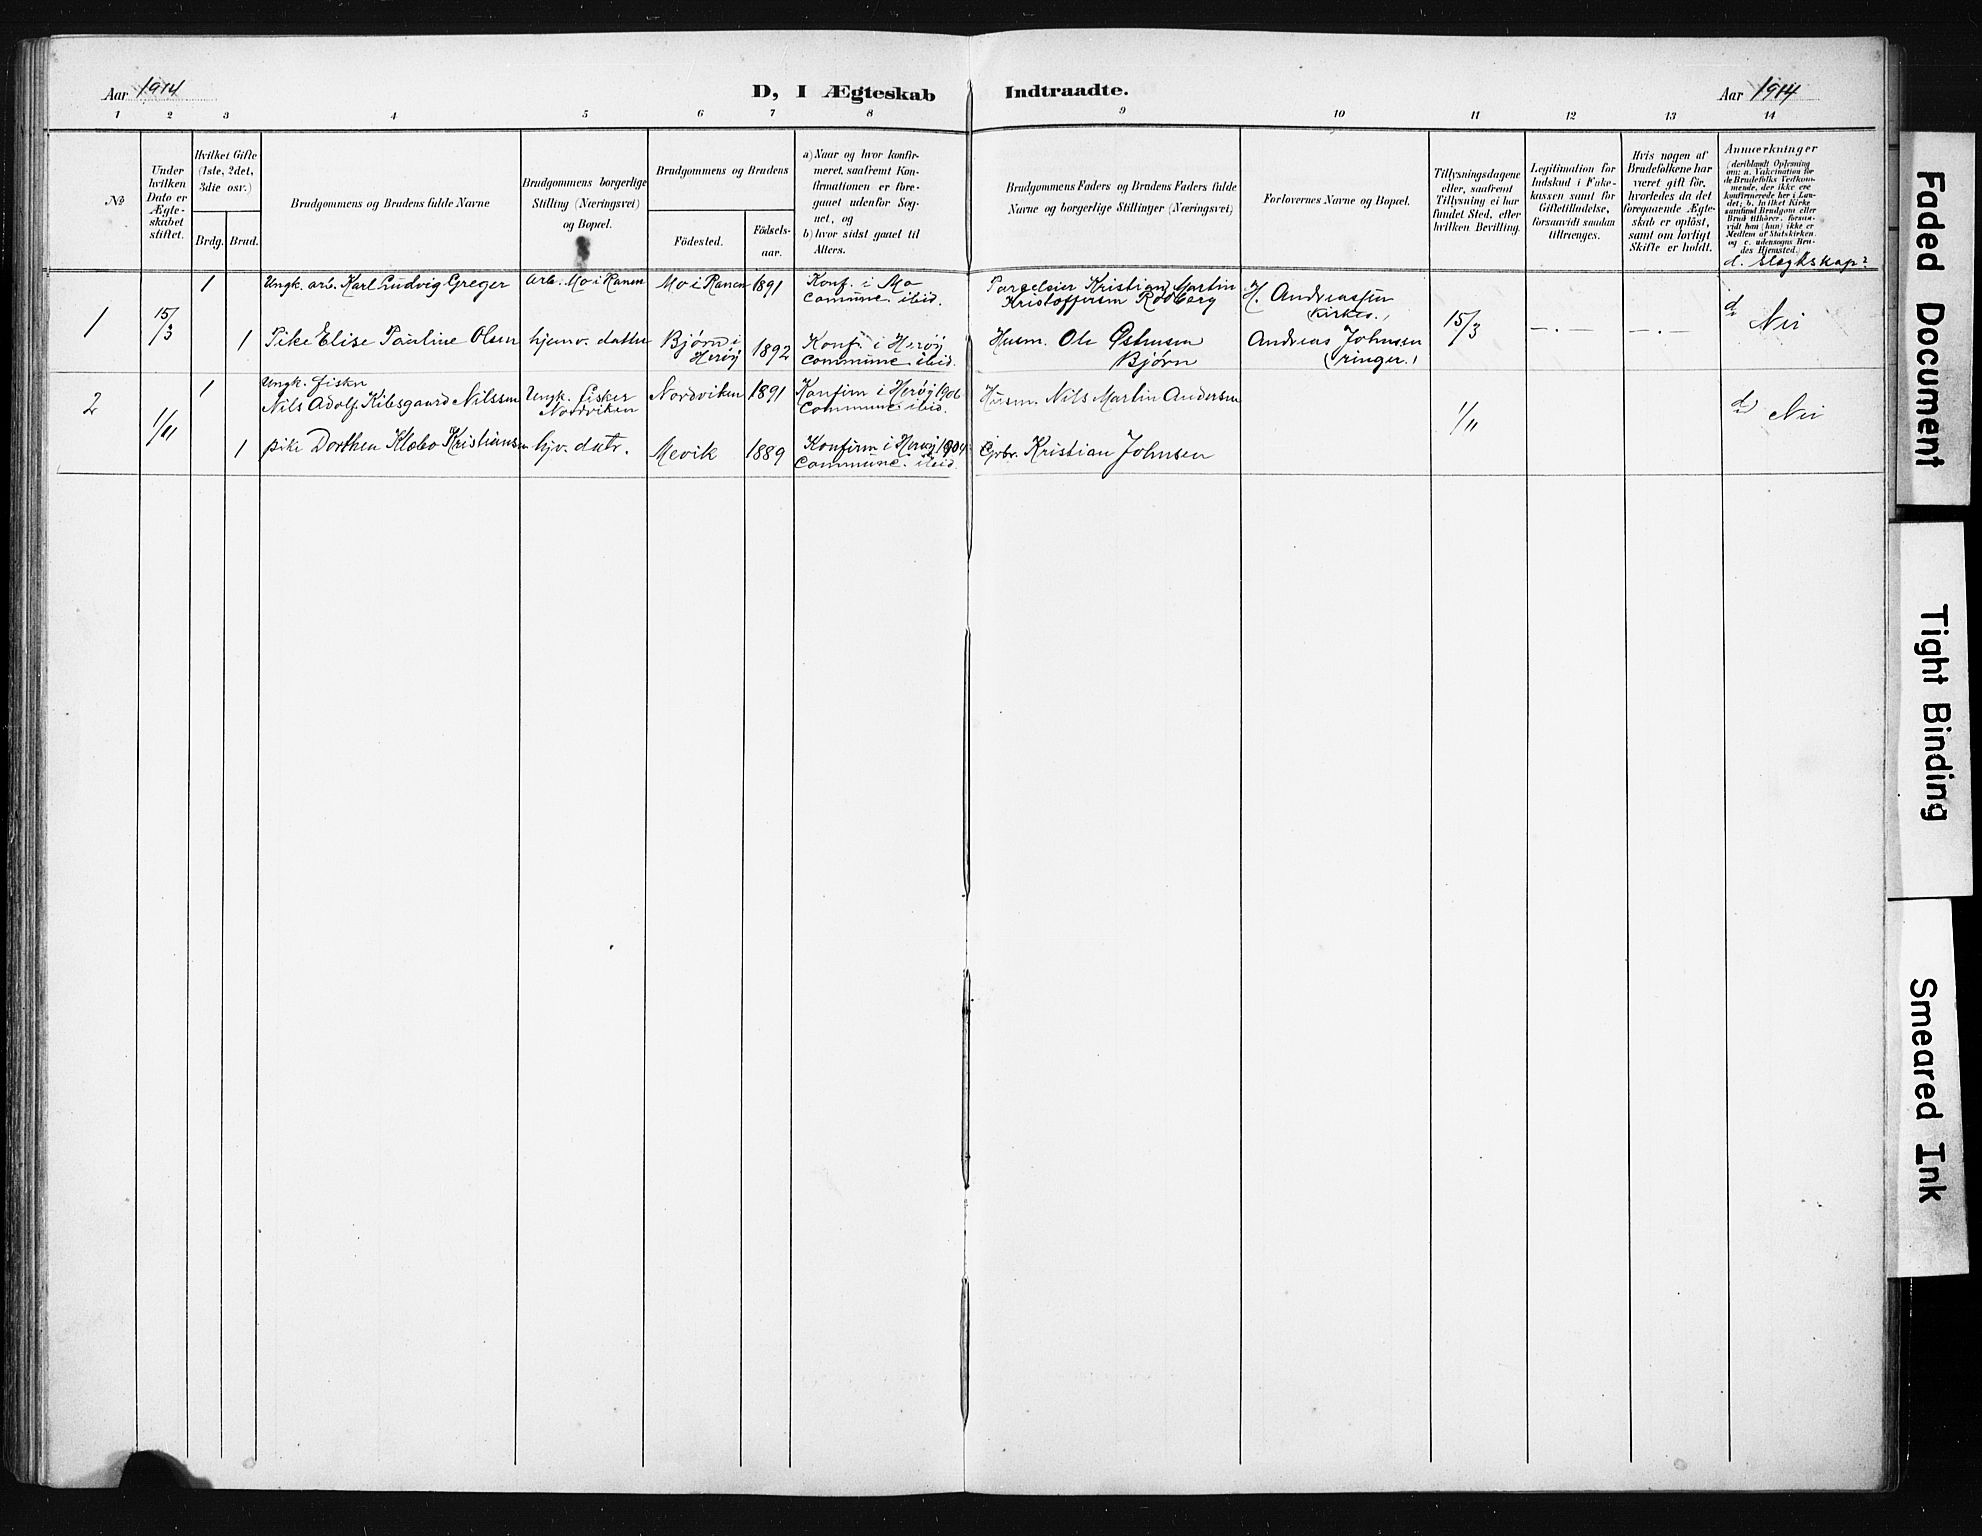 Aar 1914
D, I Ægteskab Indtraadte.
Aar 1914
1 2 3 4 5 6 7 8 9 10 11 12 13 14
No
Under
hvilken
Dato er
Ægte-
skabet
stiftet.
Hvilket Gifte
(1ste, 2det,
3die osv.)
Brdg. Brud.
Brudgommens og Brudens fulde Navne
Brudgommens borgerlige
Stilling (Næringsvei)
og Bopæl.
Brudgommens og Brudens
Födested.
Födsels-
aar.
a) Naar og hvor konfir-
meret, saafremt Kon-
firmationen er fore-
gaaet udenfor Sog-
net, og
b) hvor sidst gaaet til
Alters.
Brudgommens Faders og Brudens Faders fulde
Navne og borgerlige Stillinger (Næringsvei)
Forlovernes Navne og Bopæl.
Tillysningsdagene
eller, saafremt
Tillysning ei har
fundet Sted, efter
hvilken Bevilling.
Legitimation for
Indskud i Enke-
kassen samt for
Giftetilladelse,
forsaavidt saadan
tiltrænges.
Hvis nogen af
Brudefolkene har
været gift før,
hvorledes da det
foregaaende Ægte-
skab er opløst,
samt om lovligt
Skifte er holdt.
Anmærkninger
(deriblandt Oplysning
om: a. Vakcination for
de Brudefolks Vedkom-
mende, der ikke ere
konfirmerede her i Lan-
det; b. hvilket Kirke
samfund Brudgom eller
Brud tilhörer, forsaa-
vidt han (hun) ikke er
Medlem af Statskirken,
og c. udensogns Bru-
des Hjemsted.)
d. Slægtskap?
1 15/3 1 Ungk. arb. Karl Ludvig Greger arb. Mo i Ranen Mo i Ranen 1891 Konf. i Mo
Commune. ibid.
Kristian Martin
Kristoffersen
H. Andreassen
Kirkes.
15/3 -.- -.- d Nei
1 Pike Elise Pauline Olsen hjemv. datter Bjørn i
Herøy 1892 Konf. i Herøy
Commune ibid.
Husm. Ole Østnesen
Bjørn
Andreas Johnsen
(ringer.)
2 1/11 1 Ungk. fisker
Nils Adolf Kibsgaard Nilssen Ungk. fisker
Nordviken Nordviken 1891 Konfirm i Herøy 1906
Commune ibid.
Husm. Nils Martin Andersen
1/11 d Nei
1 pike Dorthea Klæbo Kristiansen hjv. datr. Mevik 1889 Konfirm i Herøy 1904
Commune. ibid.
Gbr. Kristian Johnsen
Faded Document
Tight Binding
Smeared Ink